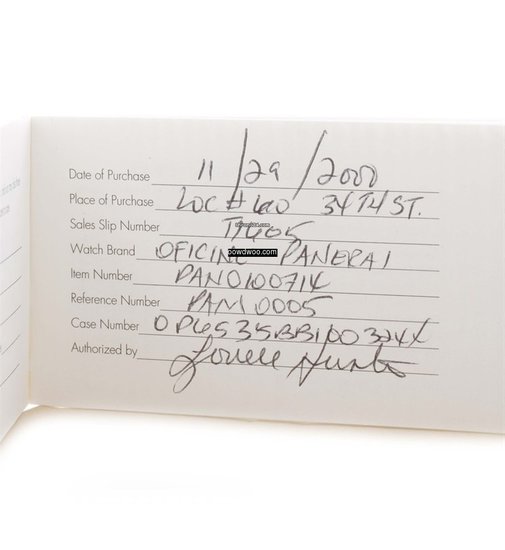 Date of Purchase 11/29/2000
Place of Purchase LOC # 610 34TH ST.
Sales Slip Number
powdwoo.com
Watch Brand OFICINE PANERAI
Item Number PAN0100714
Reference Number PAM 0005
Case Number
Authorized by